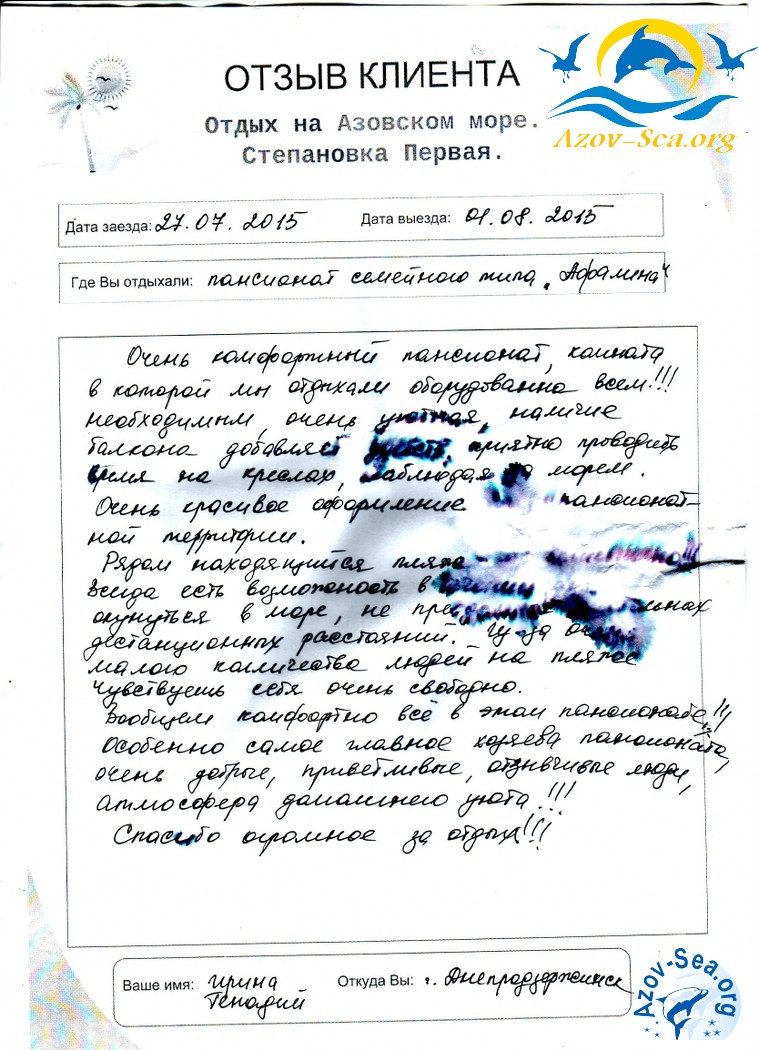 ОТЗЫВ КЛИЕНТА
Отдых на Азовском море.
Степановка Первая.
Azov-Sea.org
Дата заезда: 27.07.2015 Дата выезда: 01.08.2015
Где Вы отдыхали: пансионат семейного типа „Афалина"
Очень комфортный пансионат, комната
в которой мы отдыхали оборудованна всем!!!
необходимым, очень уютная, наличие
балкона добавляет приятно проводить
время на креслах, наблюдая за морем.
Очень красивое оформление пансионат-
ной территории.
Рядом находящийся пляж
всегда есть возможность в
окунуться в море, не
дестанционных расстояний. Из-за
малого колличества людей на пляже
чувствуешь себя очень свободно.
Вообщем комфортно всё в этом пансионате!!!
Особенно самое главное хозяева пансионата,
очень добрые, приветливые, отзывчивые люди,
атмосфера домашнего уюта!!!
Спасибо огромное за отдых!!!
Ваше имя: Ирина Откуда Вы: г. Днепродзержинск
Генадий
Azov-Sea.org